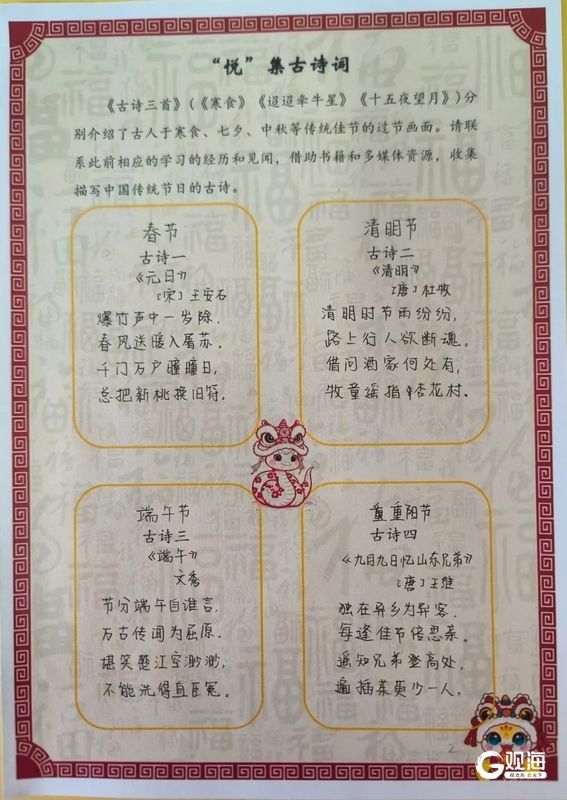 “悦”集古诗词
《古诗三首》(《寒食》《迢迢牵牛星》《十五夜望月》)分
别介绍了古人于寒食、七夕、中秋等传统佳节的过节画面。请联
系此前相应的学习的经历和见闻，借助书籍和多媒体资源，收集
描写中国传统节日的古诗。
春节
古诗一
《元日》
[宋]王安石
爆竹声中一岁除，
春风送暖入屠苏。
千门万户曈曈日，
总把新桃换旧符。
清明节
古诗二
《清明》
[唐]杜牧
清明时节雨纷纷，
路上行人欲断魂。
借问酒家何处有，
牧童遥指杏花村。
端午节
古诗三
《端午》
文秀
节分端午自谁言，
万古传闻为屈原。
堪笑楚江空渺渺，
不能洗得直臣冤。
重重阳节
古诗四
《九月九日忆山东兄弟》
[唐]王维
独在异乡为异客，
每逢佳节倍思亲。
遥知兄弟登高处，
遍插茱萸少一人。
2
G观海